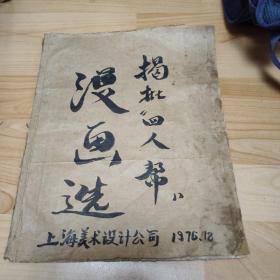 揭批“四人帮”
漫画选
上海美术设计公司 1976.12